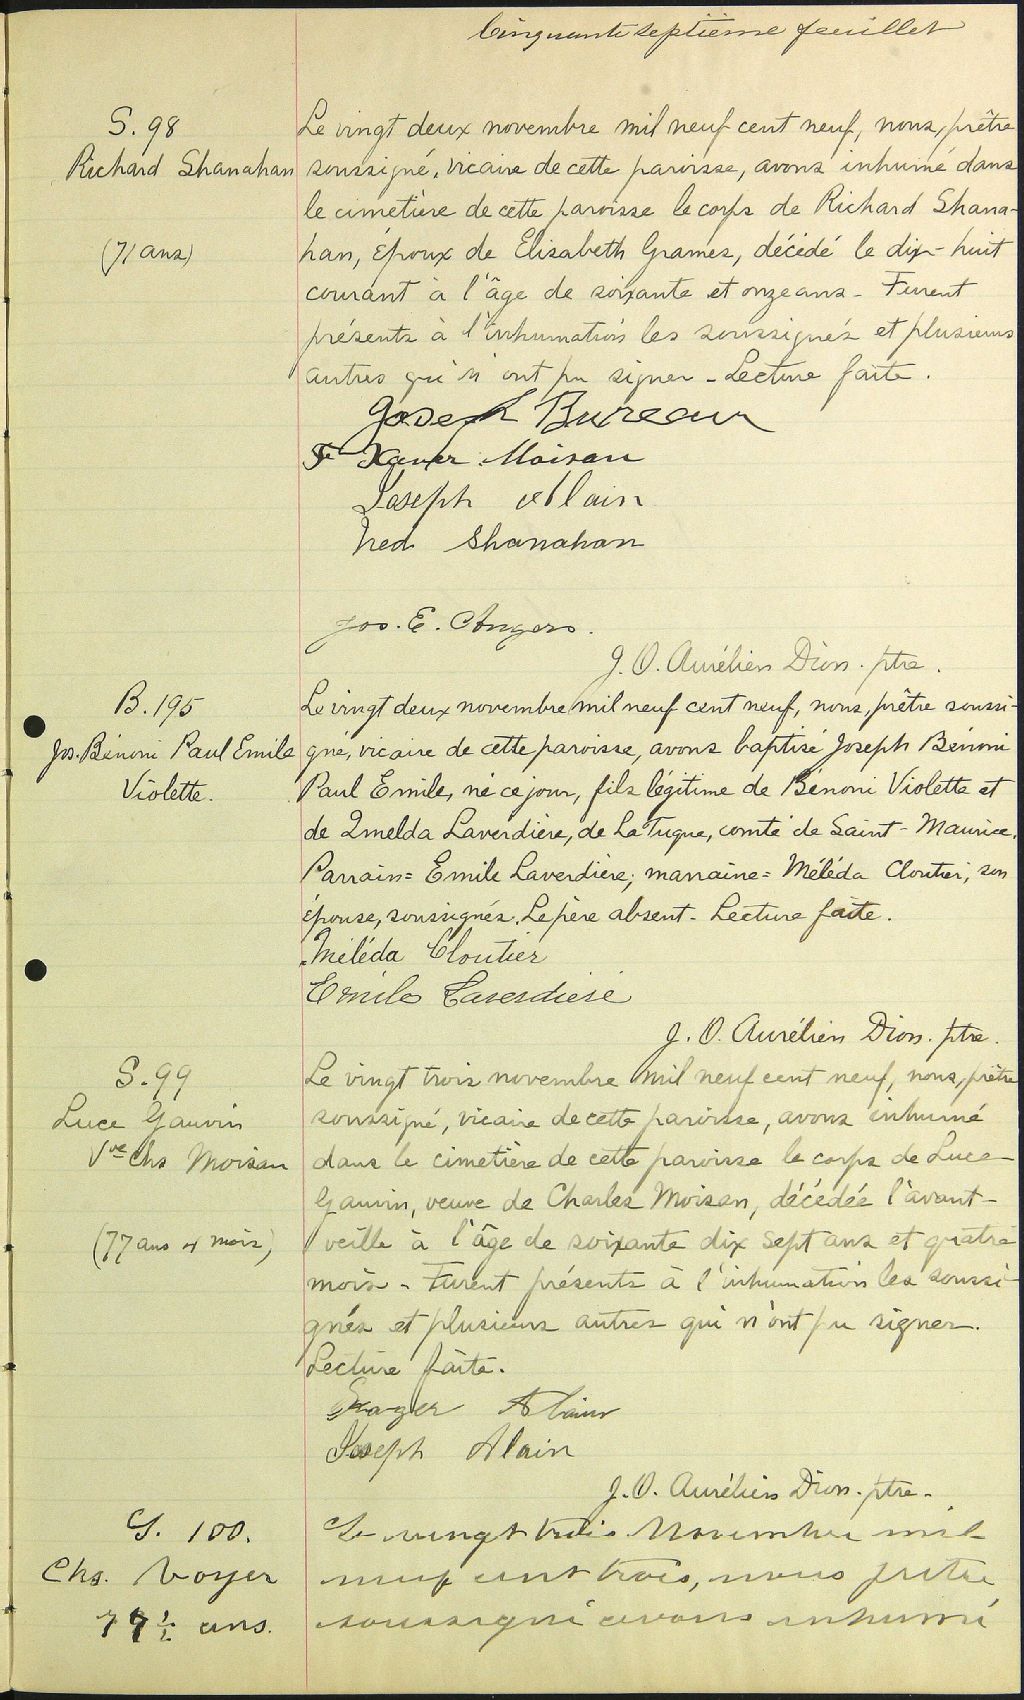 Cinquante septième feuillet
S. 98
Richard Shanahan
(71 ans)
Le vingt deux novembre mil neuf cent neuf, nous, prêtre
soussigné, vicaire de cette paroisse, avons inhumé dans
le cimetière de cette paroisse le corps de Richard Shana-
han, époux de Elisabeth Grames, décédé le dix-huit
courant à l'âge de soixante et onze ans - Furent
présents à l'inhumation les soussignés et plusieurs
autres qui n'ont pu signer - Lecture faite.
Joseph Bureau
F Xavier Moisan
Joseph Alain
Ned Shanahan
Jos. E. Angers.
J. O. Aurélien Dion. ptre.
B. 195
Jos. Bénoni Paul Emile
Violette.
Le vingt deux novembre mil neuf cent neuf, nous, prêtre soussi-
gné, vicaire de cette paroisse, avons baptisé Joseph Bénoni
Paul Emile, né ce jour, fils légitime de Bénoni Violette et
de Imelda Laverdière, de La Tuque, comté de Saint-Maurice.
Parrain = Emile Laverdière; marraine = Méléda Cloutier, son
épouse, soussignés. Le père absent - Lecture faite.
Méléda Cloutier
Emile Laverdière
J. O. Aurélien Dion. ptre.
S. 99
Luce Gauvin
Vve Chs Moisan
(77 ans 4 mois)
Le vingt trois novembre mil neuf cent neuf, nous, prêtre
soussigné, vicaire de cette paroisse, avons inhumé
dans le cimetière de cette paroisse le corps de Luce
Gauvin, veuve de Charles Moisan, décédée l'avant-
veille à l'âge de soixante dix sept ans et quatre
mois - Furent présents à l'inhumation les soussi-
gnés et plusieurs autres qui n'ont pu signer.
Lecture faite.
Alain
Joseph Alain
J. O. Aurélien Dion. ptre.
S. 100.
Chs. Voyer
77 ½ ans.
Le vingt trois Novembre mil
neuf cent trois, nous prêtre
soussigné avons inhumé